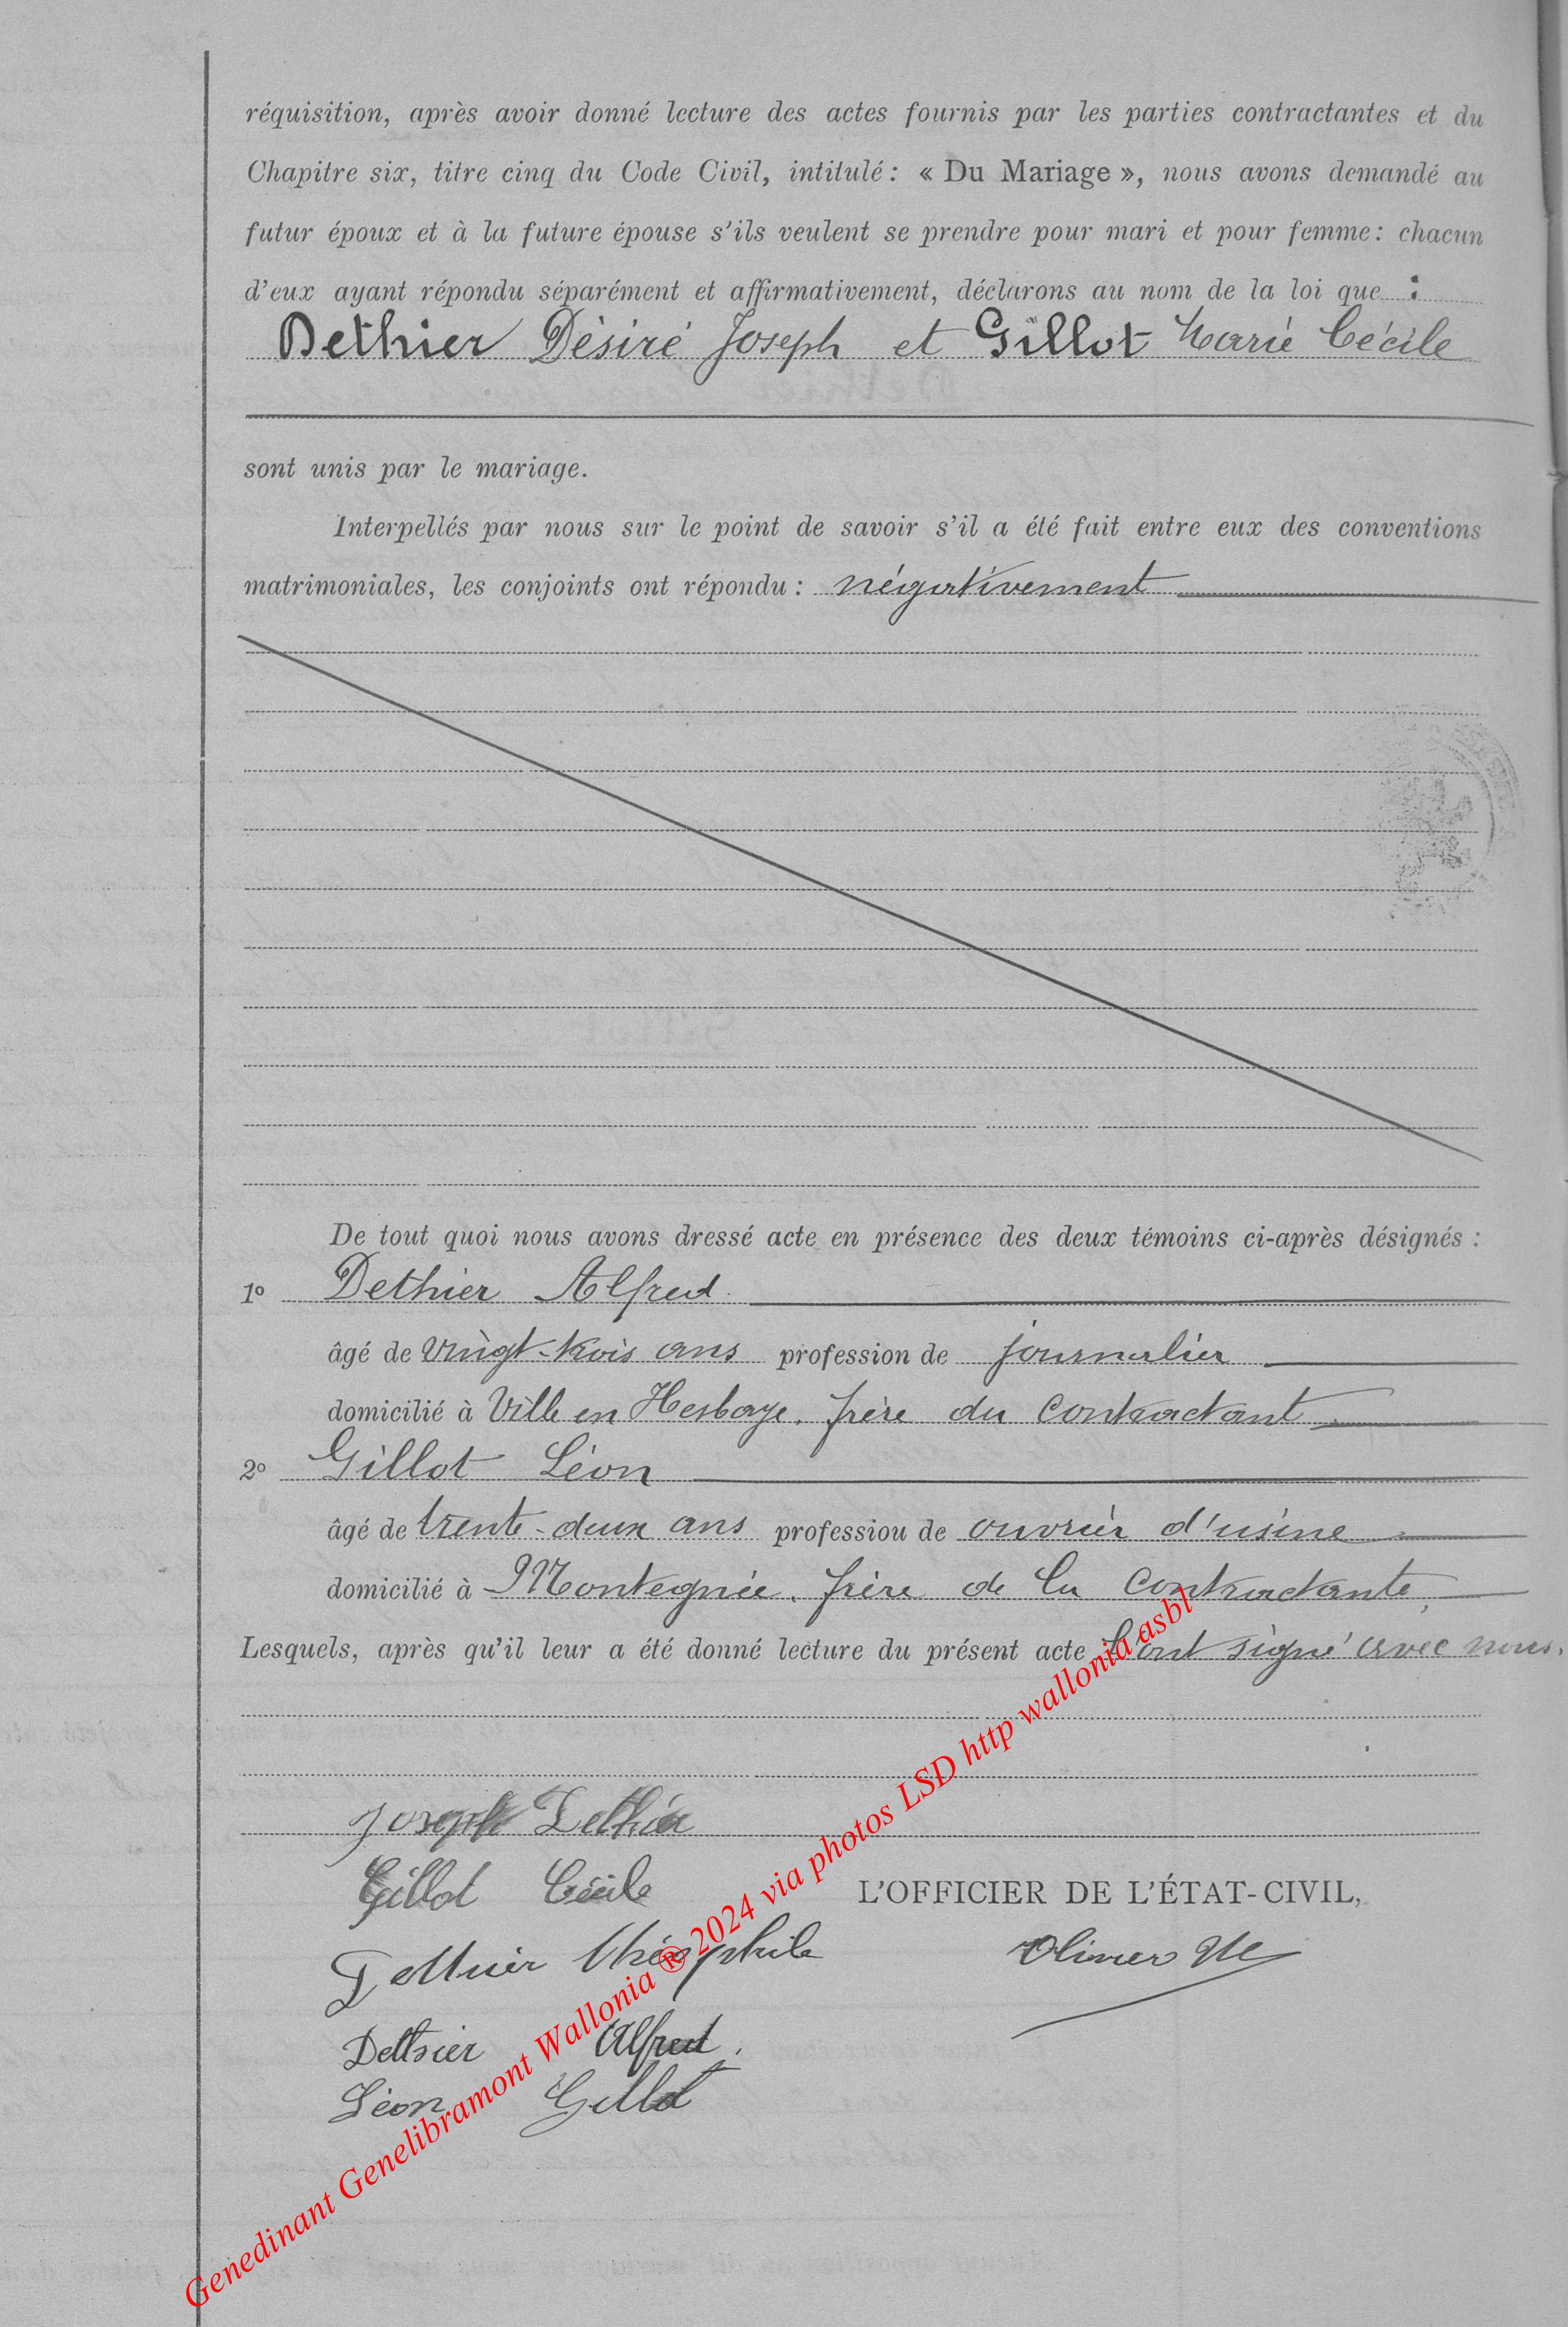 réquisition, après avoir donné lecture des actes fournis par les parties contractantes et du
Chapitre six, titre cinq du Code Civil, intitulé : « Du Mariage », nous avons demandé au
futur époux et à la future épouse s'ils veulent se prendre pour mari et pour femme : chacun
d'eux ayant répondu séparément et affirmativement, déclarons au nom de la loi que :
Dethier Désiré Joseph et Gillot Marie Cécile
sont unis par le mariage.
Interpellés par nous sur le point de savoir s'il a été fait entre eux des conventions
matrimoniales, les conjoints ont répondu : négativement
De tout quoi nous avons dressé acte en présence des deux témoins ci-après désignés :
1º Dethier Alfred
âgé de vingt-trois ans profession de journalier
domicilié à Ville en Hesbaye. frère du contractant
2º Gillot Léon
âgé de trente-deux ans profession de ouvrier d'usine
domicilié à Montegnée. frère de la contractante,
Lesquels, après qu'il leur a été donné lecture du présent acte l'ont signé avec nous.
Joseph Dethier
Gillot Cécile
L'OFFICIER DE L'ÉTAT-CIVIL,
Dethier Théophile
Dethier Alfred.
Léon Gillot
Genedinant Genelibramont Wallonia ® 2024 via photos LSD http wallonia asbl